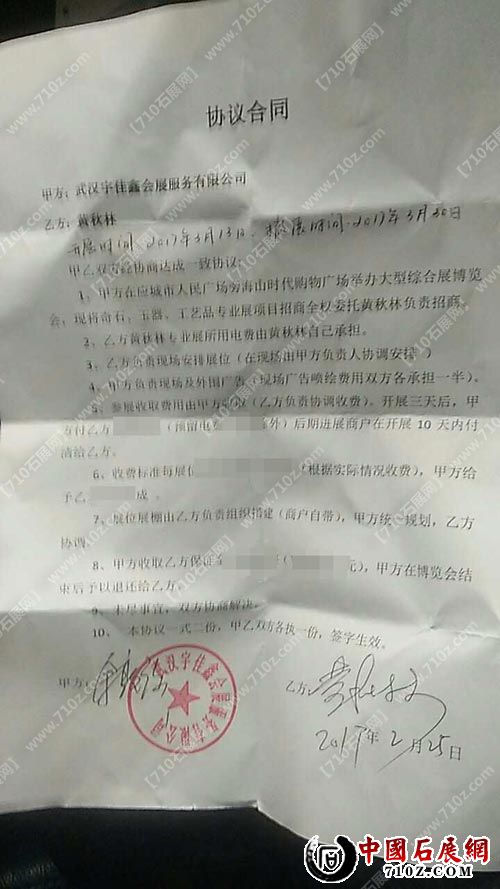 协议合同
甲方：武汉宇佳鑫会展服务有限公司
乙方：黄秋林
开展时间：2017年3月13日. 撤展时间：2017年3月30日
甲乙双方经协商达成一致协议：
1、甲方在应城市人民广场旁海山时代购物广场举办大型综合展博览
会，现将奇石、玉器、工艺品专业展项目招商全权委托黄秋林负责招商。
2、乙方黄秋林专业展所用电费由黄秋林自己承担。
3、乙方负责现场安排展位（在现场由甲方负责人协调安排）
4、甲方负责现场及外围广告（现场广告喷绘费用双方各承担一半）。
5、参展收取费用由甲方 （乙方负责协调收费）。开展三天后，甲
方付乙方 （预留电 外）后期进展商户在开展 10 天内付
清给乙方。
6、收费标准每展位 （根据实际情况收费），甲方给
予乙 成。
7、展位展棚由乙方负责组织搭建（商户自带），甲方统一规划，乙方
协调。
8、甲方收取乙方保证 元），甲方在博览会结
束后予以退还给乙方。
9、未尽事宜，双方协商解决。
10、本协议一式二份，甲乙双方各执一份，签字生效。
甲方：
武汉宇佳鑫会展服务有限公司
乙方：黄秋林
2017年2月25日
【710石展网】
www.710z.com
中國石展網
710Z.COM